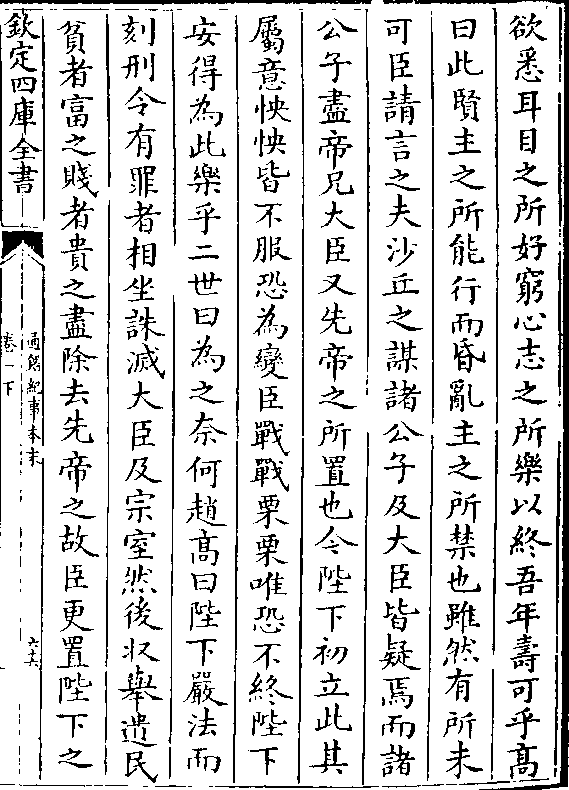 欲悉耳目之所好窮心志之所樂以終吾年壽可乎高
曰此賢主之所能行而昏亂主之所禁也雖然有所未
可臣請言之夫沙丘之謀諸公子及大臣皆疑焉而諸
公子盡帝兄大臣又先帝之所置也今陛下初立此其
屬意怏怏皆不服恐為變臣戰戰栗栗唯恐不終陛下
安得為此樂乎二世曰為之奈何趙高曰陛下嚴法而
刻刑令有罪者相坐誅滅大臣及宗室然後收舉遺民
貧者富之賤者貴之盡除去先帝之故臣更置陛下之
欽定四庫全書
通鑑紀事本末
卷一下
六六